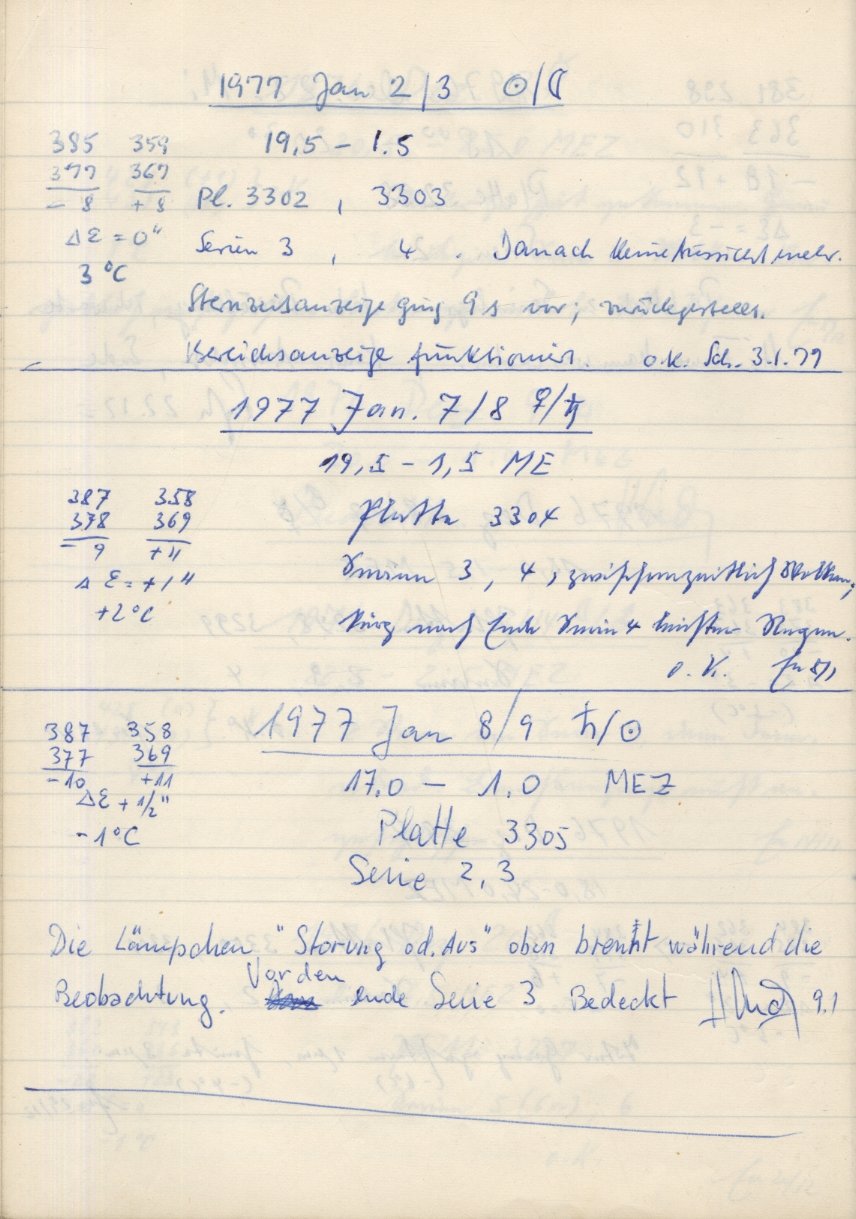 1977 Jan 2/3 ☉/☾
385 359 19,5 – 1.5
377 367
– 8 + 8 Pl. 3302 , 3303
Δε = 0" Serien 3 , 4 . Danach keine Aussicht mehr.
3 °C
Sternzeitanzeige ging 9 s vor; zurückgestellt.
Bereichsanzeige funktioniert. o.k. Sch. 3.1.77
1977 Jan. 7/8 ♀/♄
19,5 – 1,5 ME
387 358 Platte 3304
378 369
– 9 + 11
Δ ε = + 1" Serien 3, 4, zwischenzeitlich Wolken,
+2°C
kurz nach Ende Serie 4 leichter Regen.
o. K.
387 358 1977 Jan 8/9 ♄/☉
377 369
–10 +11 17.0 – 1.0 MEZ
Δε + 1/2"
–1°C Platte 3305
Serie 2,3
Die Lämpchen "Storung od. Aus" oben brennt während die
Vor den
Beobachtung. ende Serie 3 Bedeckt 9.1